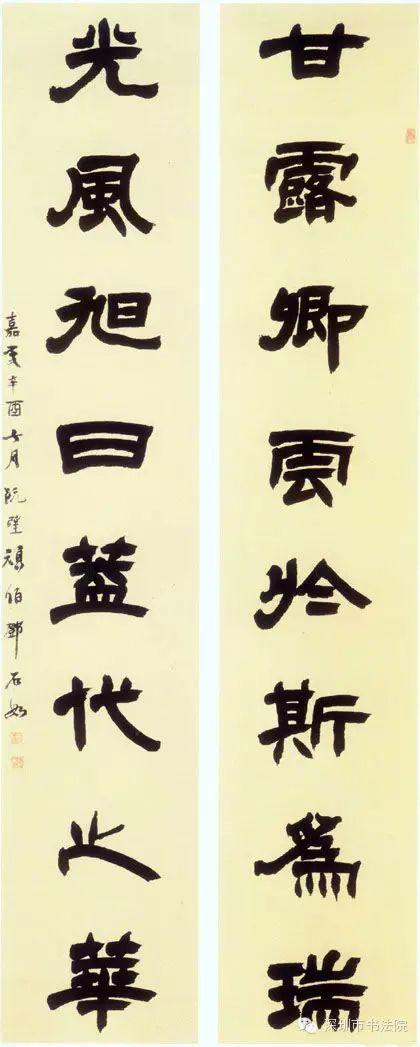 甘露卿雲於斯爲瑞
光風旭日蓋代之華
嘉慶辛酉七月既望頑伯鄧石如
深圳市书法院